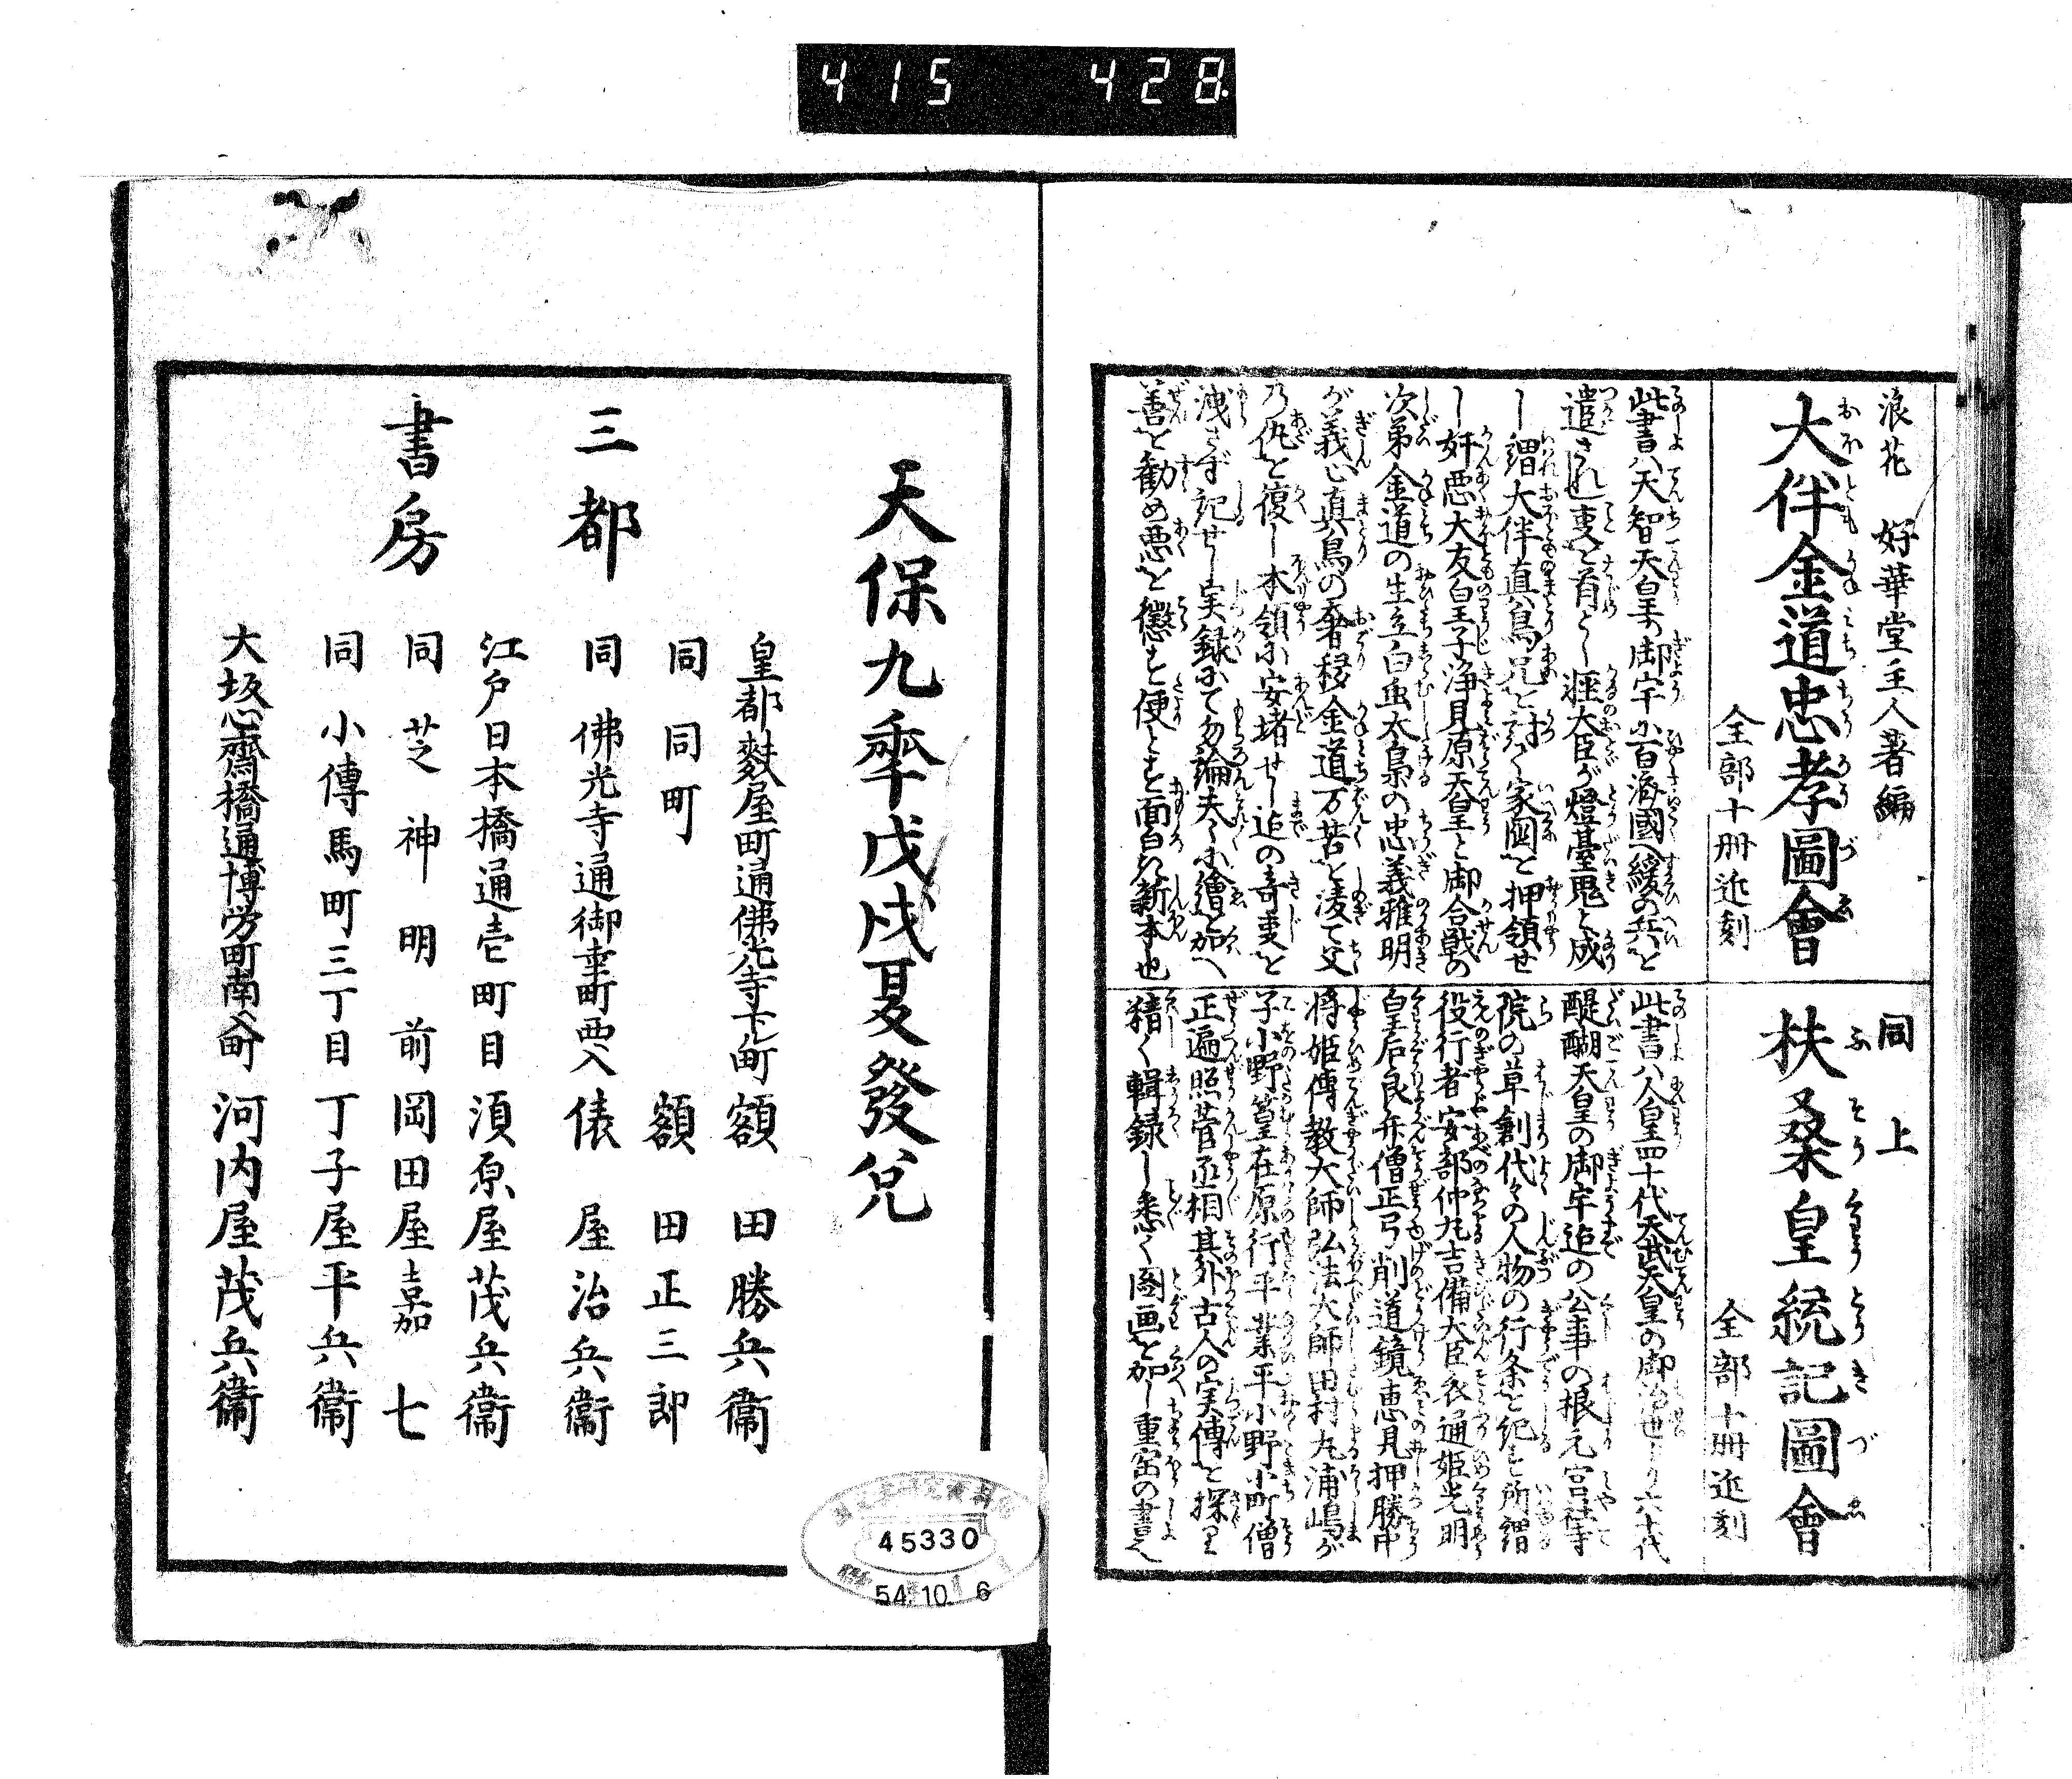 415 428
浪花 好華堂主人著編
大伴金道忠孝圖會
全部十冊近刻
此書ハ天智天皇の御宇に百済國へ援の兵を
遣され事を首とし軽大臣が燈臺鬼と成
し謂大伴真鳥兄を討て家国を押領せ
し奸悪大友皇子浄見原天皇と御合戦の
次第金道の生立白虫太梟の忠義雅明
が義心真鳥の奢移金道万苦を凌て父
の仇を復し本領に安堵せし迄の奇事を
洩さず記せし実録にて勿論夫々に繪を加へ
善を勧め悪を懲すを便とす面白き新本也
同上
扶桑皇統記圖會
全部十冊近刻
此書ハ人皇四十代天武天皇の御治世より六十代
醍醐天皇の御宇迄の公事の根元宮社寺
院の草創代々の人物の行条を紀す所謂
役行者安部仲丸吉備大臣衣通姫光明
皇后良弁僧正弓削道鏡恵見押勝中
将姫傳教大師弘法大師田村丸浦嶋が
子小野篁在原行平業平小野小町僧
正遍照菅丞相其外古人の実傳を探り
精く輯録し悉く圖画を加し重宝の書也
天保九年戊戌夏發兌
三都
書房
皇都麩屋町通佛光寺下ル町 額田勝兵衞
同 同町 額田正三郎
同 佛光寺通御幸町西入 俵屋治兵衞
江戸日本橋通壱町目 須原屋茂兵衞
同 芝神明前 岡田屋嘉七
同 小傳馬町三丁目 丁子屋平兵衞
大坂心齋橋通博労町南ヘ入町 河内屋茂兵衞
45330
54.10.6